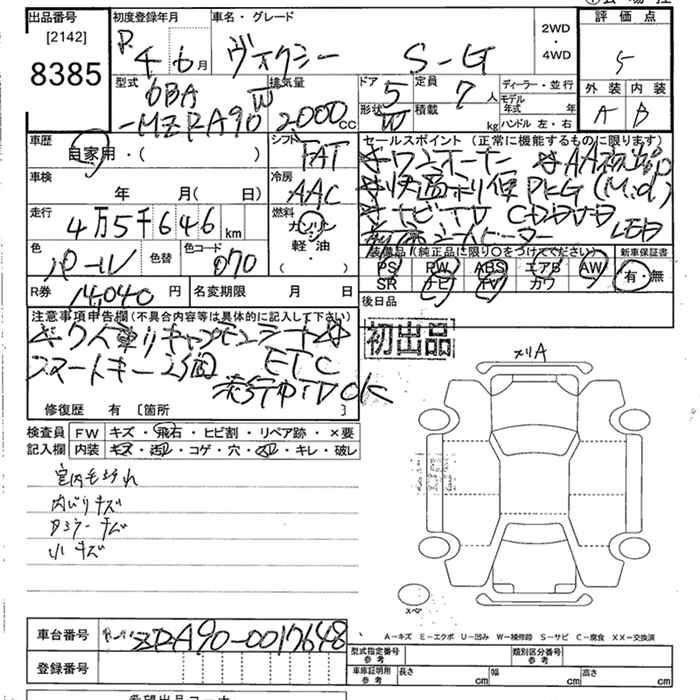 出品番号
[2142]
8385
初度登録年月
R 4 6 月
車名・グレード
ヴォクシー S-G
2WD
・
4WD
評価点
5
外装 内装
A B
型式
6BA
-MZRA90W
排気量
2000cc
ドア
5
定員
7人
形状
W
積載
kg
ディーラー・並行
モデル年式 年
ハンドル 左・右
車歴
自家用・( )
シフト
FAT
車検
年 月( 日)
冷房
AAC
走行
4万5千646km
燃料
ガソリン
軽・油
( )
色
パール
色替
色コード
070
R券
14,040円
名変期限 月 日
セールスポイント(正常に機能するものに限ります)
☆ワンオーナー ☆AA初出品
☆快適利便PKG(Mid)
☆ナビTV CDDVD
前席シートヒーター LED
装備品(純正品に限り○をつけてください)
PS PW ABS エアB AW
SR ナビ TV カワ
新車保証書
有・無
後日品
初出品
注意事項申告欄(不具合内容等は具体的に記入して下さい)
☆7人乗りキャプテンシート☆
スマートキー2個 ETC
走行中TVOK
修復歴 有 [箇所 ]
検査員
記入欄
FW キズ・飛石・ヒビ割・リペア跡・×要
内装 キズ・汚レ・コゲ・穴・スレ・キレ・破レ
室内毛よごれ
内ばりキズ
Dミラーキズ
小キズ
スリA
スペ
A-キズ E-エクボ U-凹み W-補修跡 S-サビ C-腐食 XX-交換済
車台番号
ZRA90-0017648
登録番号
型式指定番号
参考
類別区分番号
参考
車庫証明用
参考
長さ cm
幅 cm
高さ cm